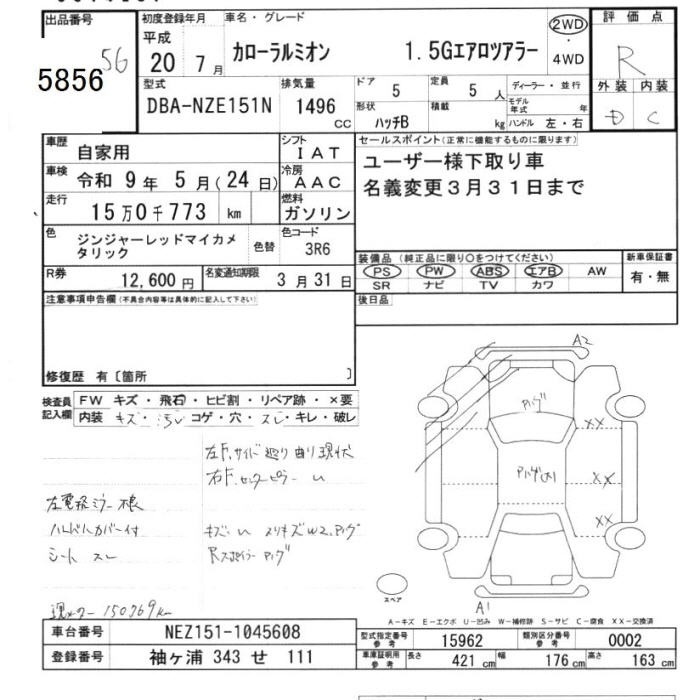 出品番号
5856
56
初度登録年月
平成
20 7月
車名・グレード
カローラルミオン 1.5Gエアロツアラー
2WD
・
4WD
評価点
R
外装 内装
D C
型式
DBA-NZE151N
排気量
1496
CC
ドア 5
定員 5人
形状 ハッチB
積載 kg
ディーラー・並行
モデル年式 年
ハンドル 左・右
車歴 自家用
シフト IAT
車検 令和 9年 5月(24日)
冷房 AAC
走行 15万0千773 km
燃料 ガソリン
色 ジンジャーレッドマイカメタリック
色替
色コード 3R6
R券 12,600円
名変通知期限 3月31日
セールスポイント(正常に機能するものに限ります)
ユーザー様下取り車
名義変更3月31日まで
装備品(純正品に限り○をつけてください)
PS PW ABS エアB AW
SR ナビ TV カワ
新車保証書
有・無
後日品
注意事項申告欄(不具合内容等は具体的に記入して下さい)
修復歴 有〔箇所 〕
検査員記入欄
FW キズ・飛石・ヒビ割・リペア跡・×要
内装 キズ・汚レ・コゲ・穴・スレ・キレ・破レ
左F.サイド廻り曲り現状
左電格ミラー
ハンドルカバー付
シート スレ
現メーター 150769km
A2
XX
XX
XX
A1
スペア
A-キズ E-エクボ U-凹み W-補修跡 S-サビ C-腐食 XX-交換済
車台番号 NEZ151-1045608
登録番号 袖ヶ浦 343 せ 111
型式指定番号 参考 15962
類別区分番号 参考 0002
車庫証明用 参考 長さ 421cm 幅 176cm 高さ 163cm